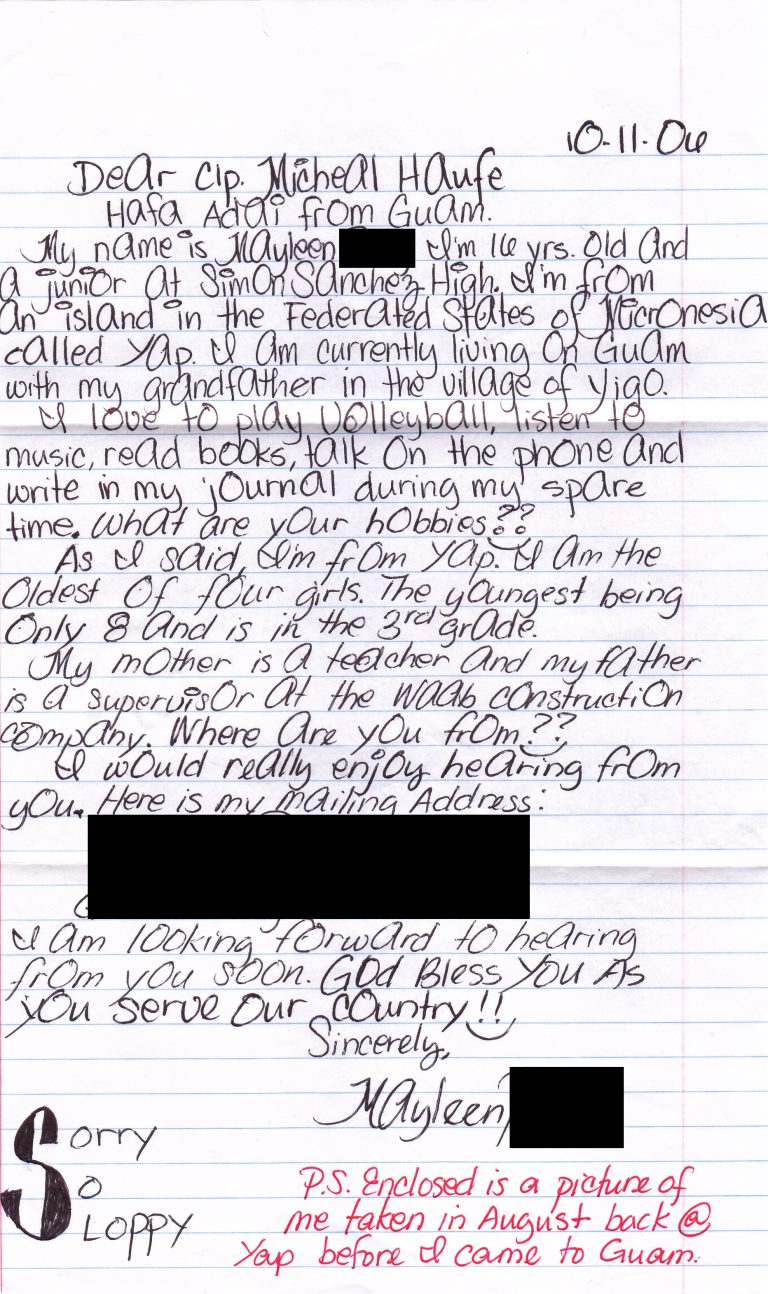 10-11-06
Dear Clp. Micheal Haufe
Hafa Adai from Guam.
My name is Mayleen I'm 16 yrs. old and
a junior at Simon Sanchez High. I'm from
an island in the Federated States of Micronesia
called Yap. I am currently living on Guam
with my grandfather in the village of Yigo.
I love to play volleyball, listen to
music, read books, talk on the phone and
write in my journal during my spare
time. What are your hobbies??
As I said, I'm from Yap. I am the
oldest of four girls. The youngest being
only 8 and is in the 3rd grade.
My mother is a teacher and my father
is a supervisor at the Waab construction
company. Where are you from??
I would really enjoy hearing from
you. Here is my mailing Address:
I am looking forward to hearing
from you soon. GOD Bless You As
you serve our country!!
Sincerely,
Mayleen
Sorry
So
Sloppy
P.S. Enclosed is a picture of
me taken in August back @
Yap before I came to Guam.